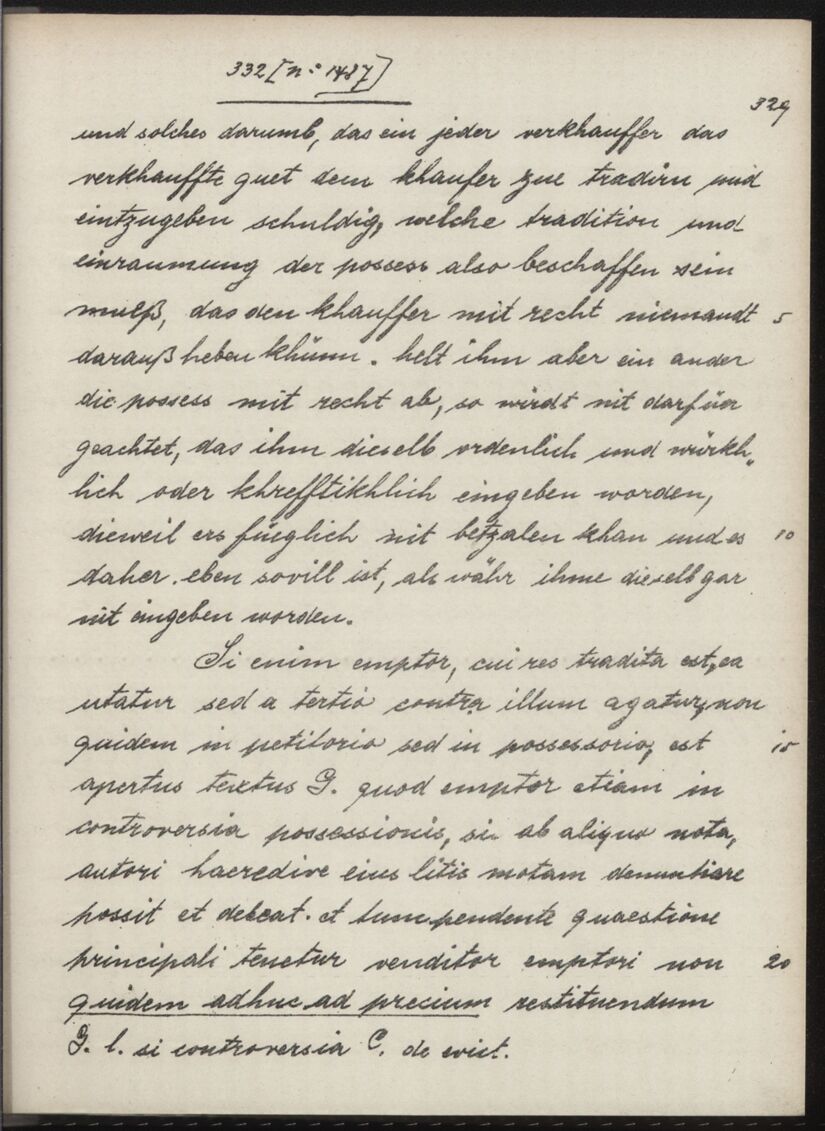 332 [n° 1487]
329
und solches darumb, das ein jeder verkhauffer das
verkhauffte guet dem khaufer zue tradirn und
eintzugeben schuldig, welche tradition und
einraumung der possess also beschaffen sein
mueß, das den khauffer mit recht niemandt 5
darauß heben khünn. helt ihm aber ein ander
die possess mit recht ab, so würdt nit darfüer
geachtet, das ihm dieselb ordenlich und würkh„
lich oder khrefftikhlich eingeben worden,
dieweil ers füeglich nit betzalen khan und es 10
daher eben sovill ist, als währ ihme dieselb gar
nit eingeben worden.
Si enim emptor, cui res tradita est, ea
utatur sed a tertio contra illum agatur, non
quidem in petitorio sed in possessorio, est 15
apertus textus G. quod emptor etiam in
controversia possessionis, si ab aliquo nota,
autori haeredive eius litis motam denuntiare
possit et debeat. et tunc pendente quaestione
principali tenetur venditor emptori non 20
quidem adhuc ad precium restituendum
G. l. si controversia C. de evict.